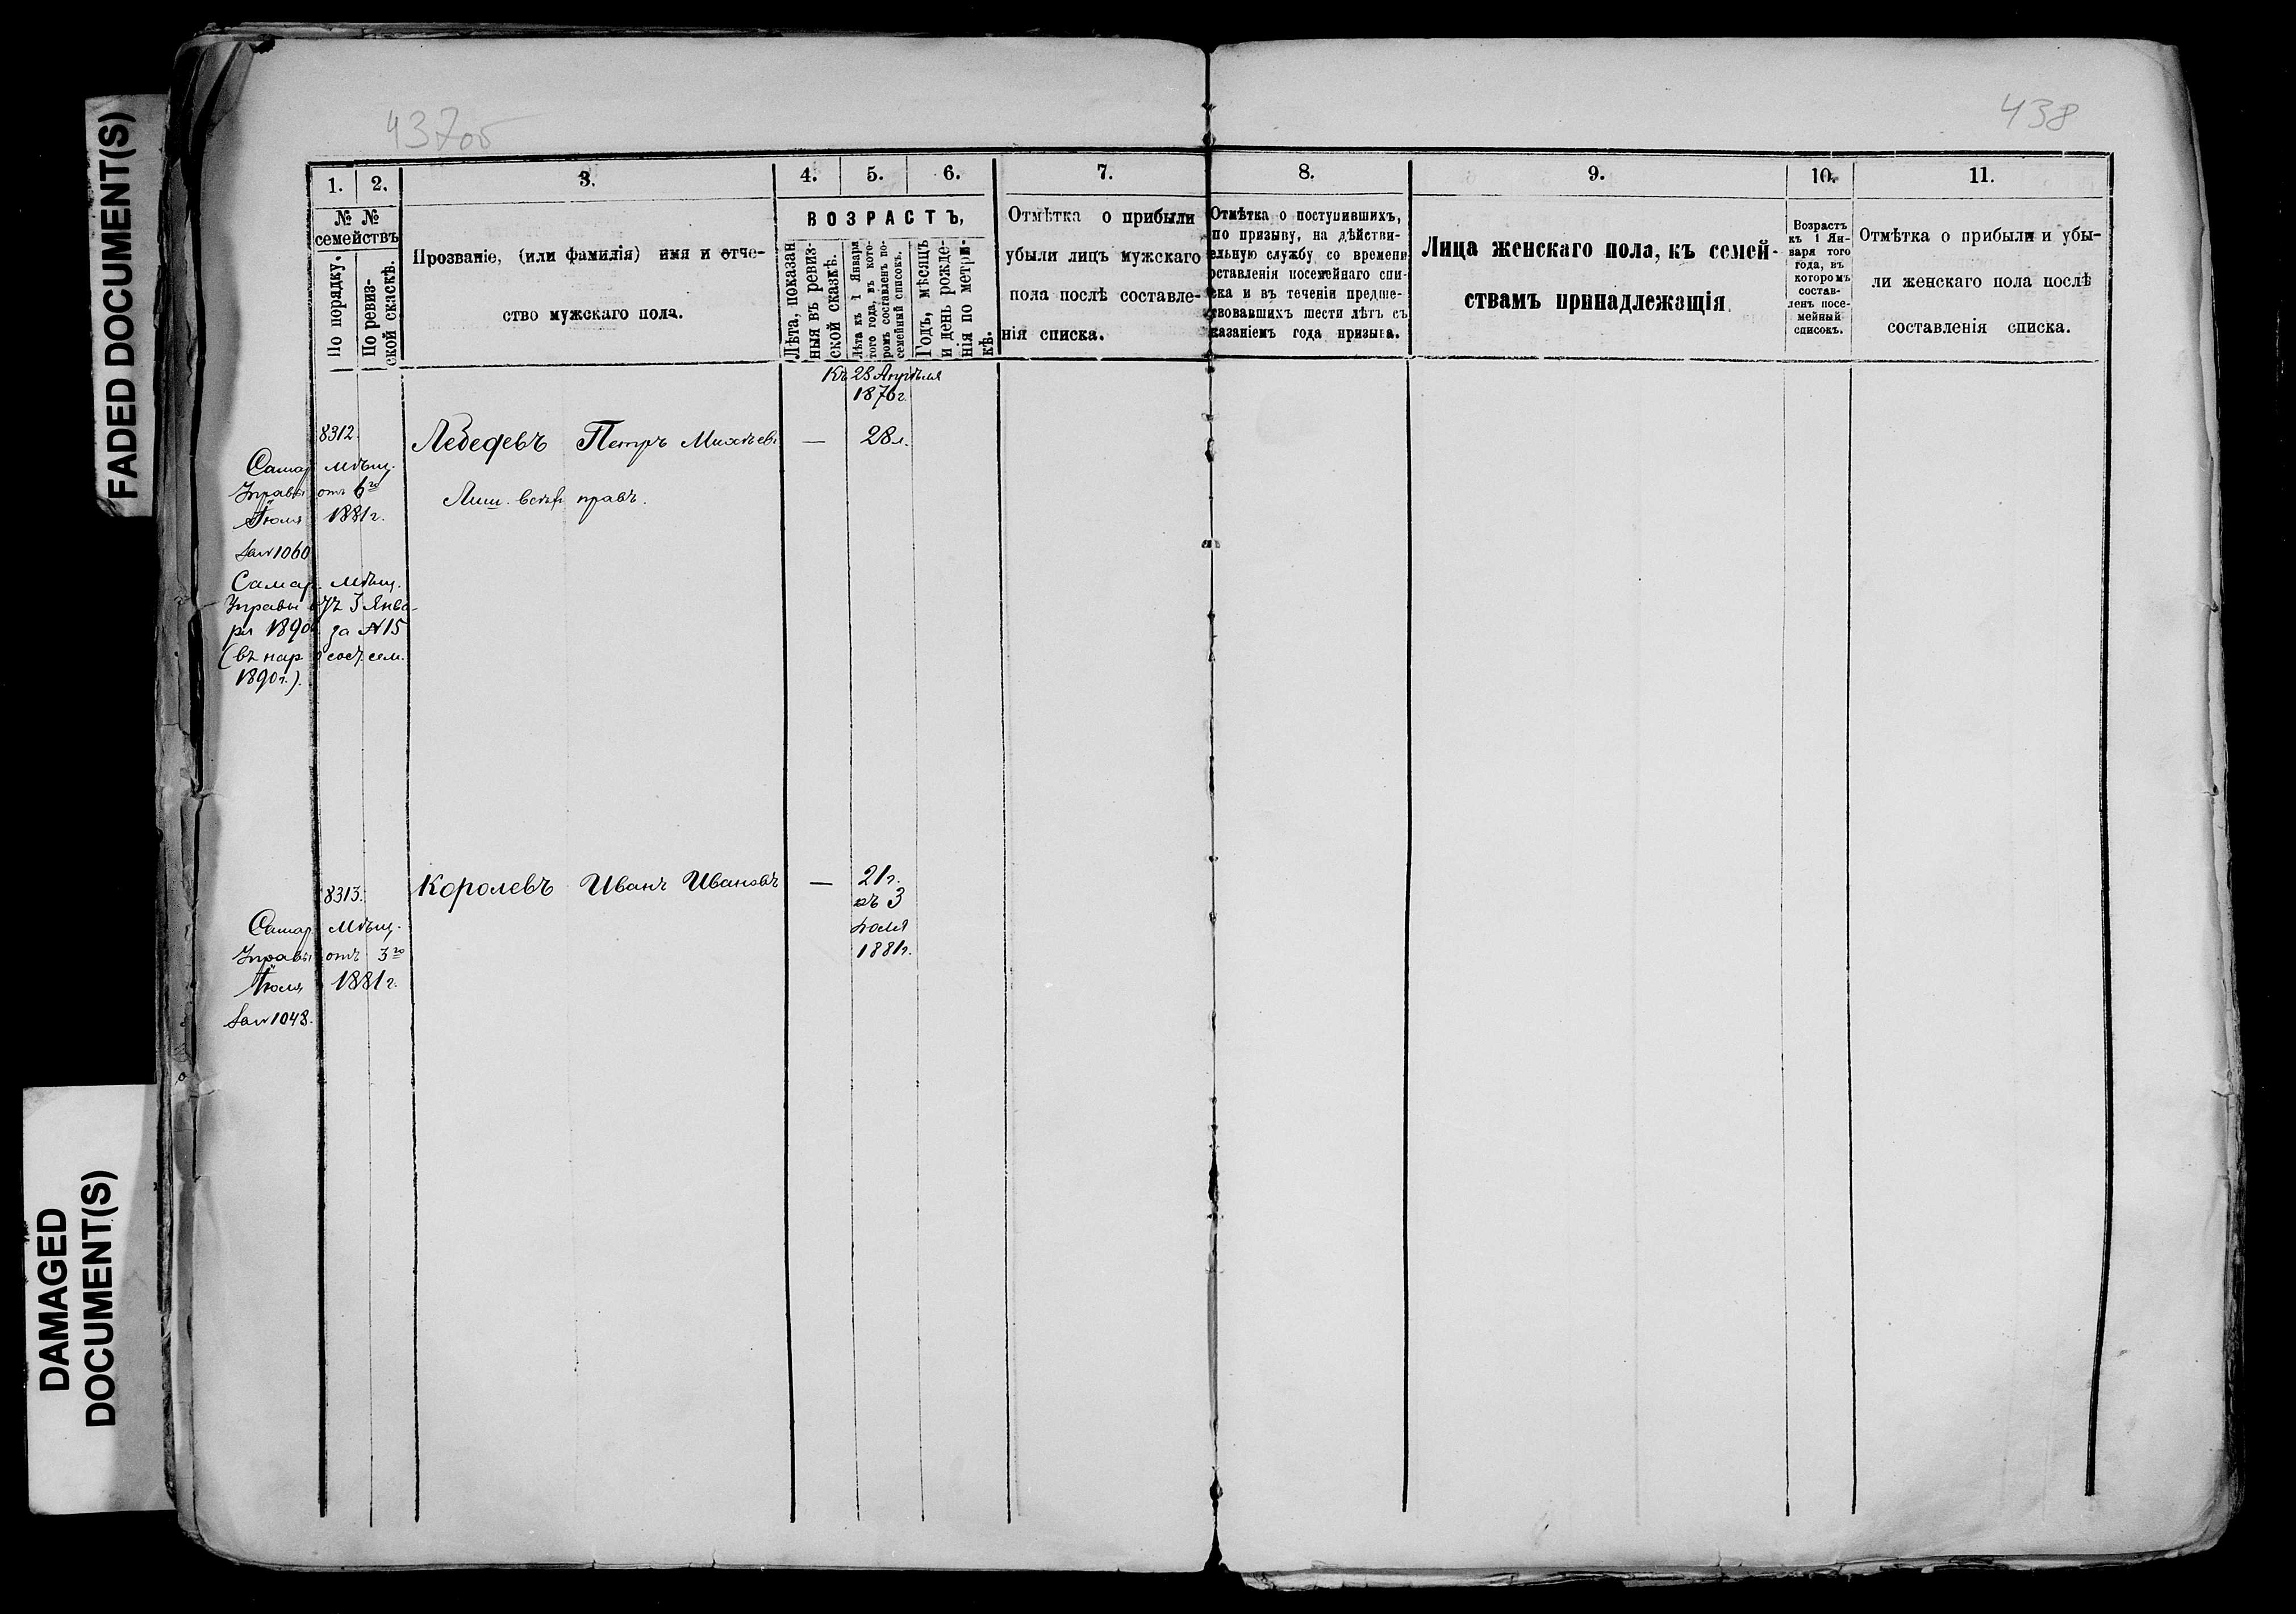 FADED DOCUMENT(S)
DAMAGED
DOCUMENT(S)
437об
438
1. 2. 3. 4. 5. 6. 7. 8. 9. 10. 11.
№ №
семействъ
По порядку.
По ревиз-
ской скаскѣ.
Прозваніе, (или фамилія) имя и отче-
ство мужскаго пола.
ВОЗРАСТЪ,
Лѣта, показан
ныя въ ревиз-
ской сказкѣ.
Лѣта къ 1 Января
того года, въ кото-
ромъ составленъ по-
семейный списокъ.
Годъ, мѣсяцъ
и день рожде-
нія по метри-
кѣ.
Отмѣтка о прибыли
убыли лицъ мужскаго
пола послѣ составле-
нія списка.
Отмѣтка о поступившихъ,
по призыву, на дѣйстви-
ельную службу со времени
оставленія посемейнаго спи-
ска и въ теченіи предше-
твовавшихъ шести лѣтъ съ
казаніемъ года призыва.
Лица женскаго пола, къ семей-
ствамъ принадлежащія.
Возрастъ
къ 1 Ян-
варя того
года, въ
которомъ
состав-
ленъ посе-
мейный
списокъ.
Отмѣтка о прибыли и убы-
ли женскаго пола послѣ
составленія списка.
Къ 28 Апрѣля
1876 г.
8312. Лебедевъ Петръ — 28 л.
Самар. Мѣщ.
Управы отъ 6го
Іюля 1881 г.
за № 1060
Лиш. всѣх правъ.
Самар. Мѣщ.
Управы отъ 3 Янва-
ря 1890 г. за № 15
(въ нар. о сост. сем.
1890 г.).
8313. Королевъ Иванъ Ивановъ — 21 г.
къ 3
Іюля
1881 г.
Самар. Мѣщ.
Управы отъ 3го
Іюля 1881 г.
за № 1048.